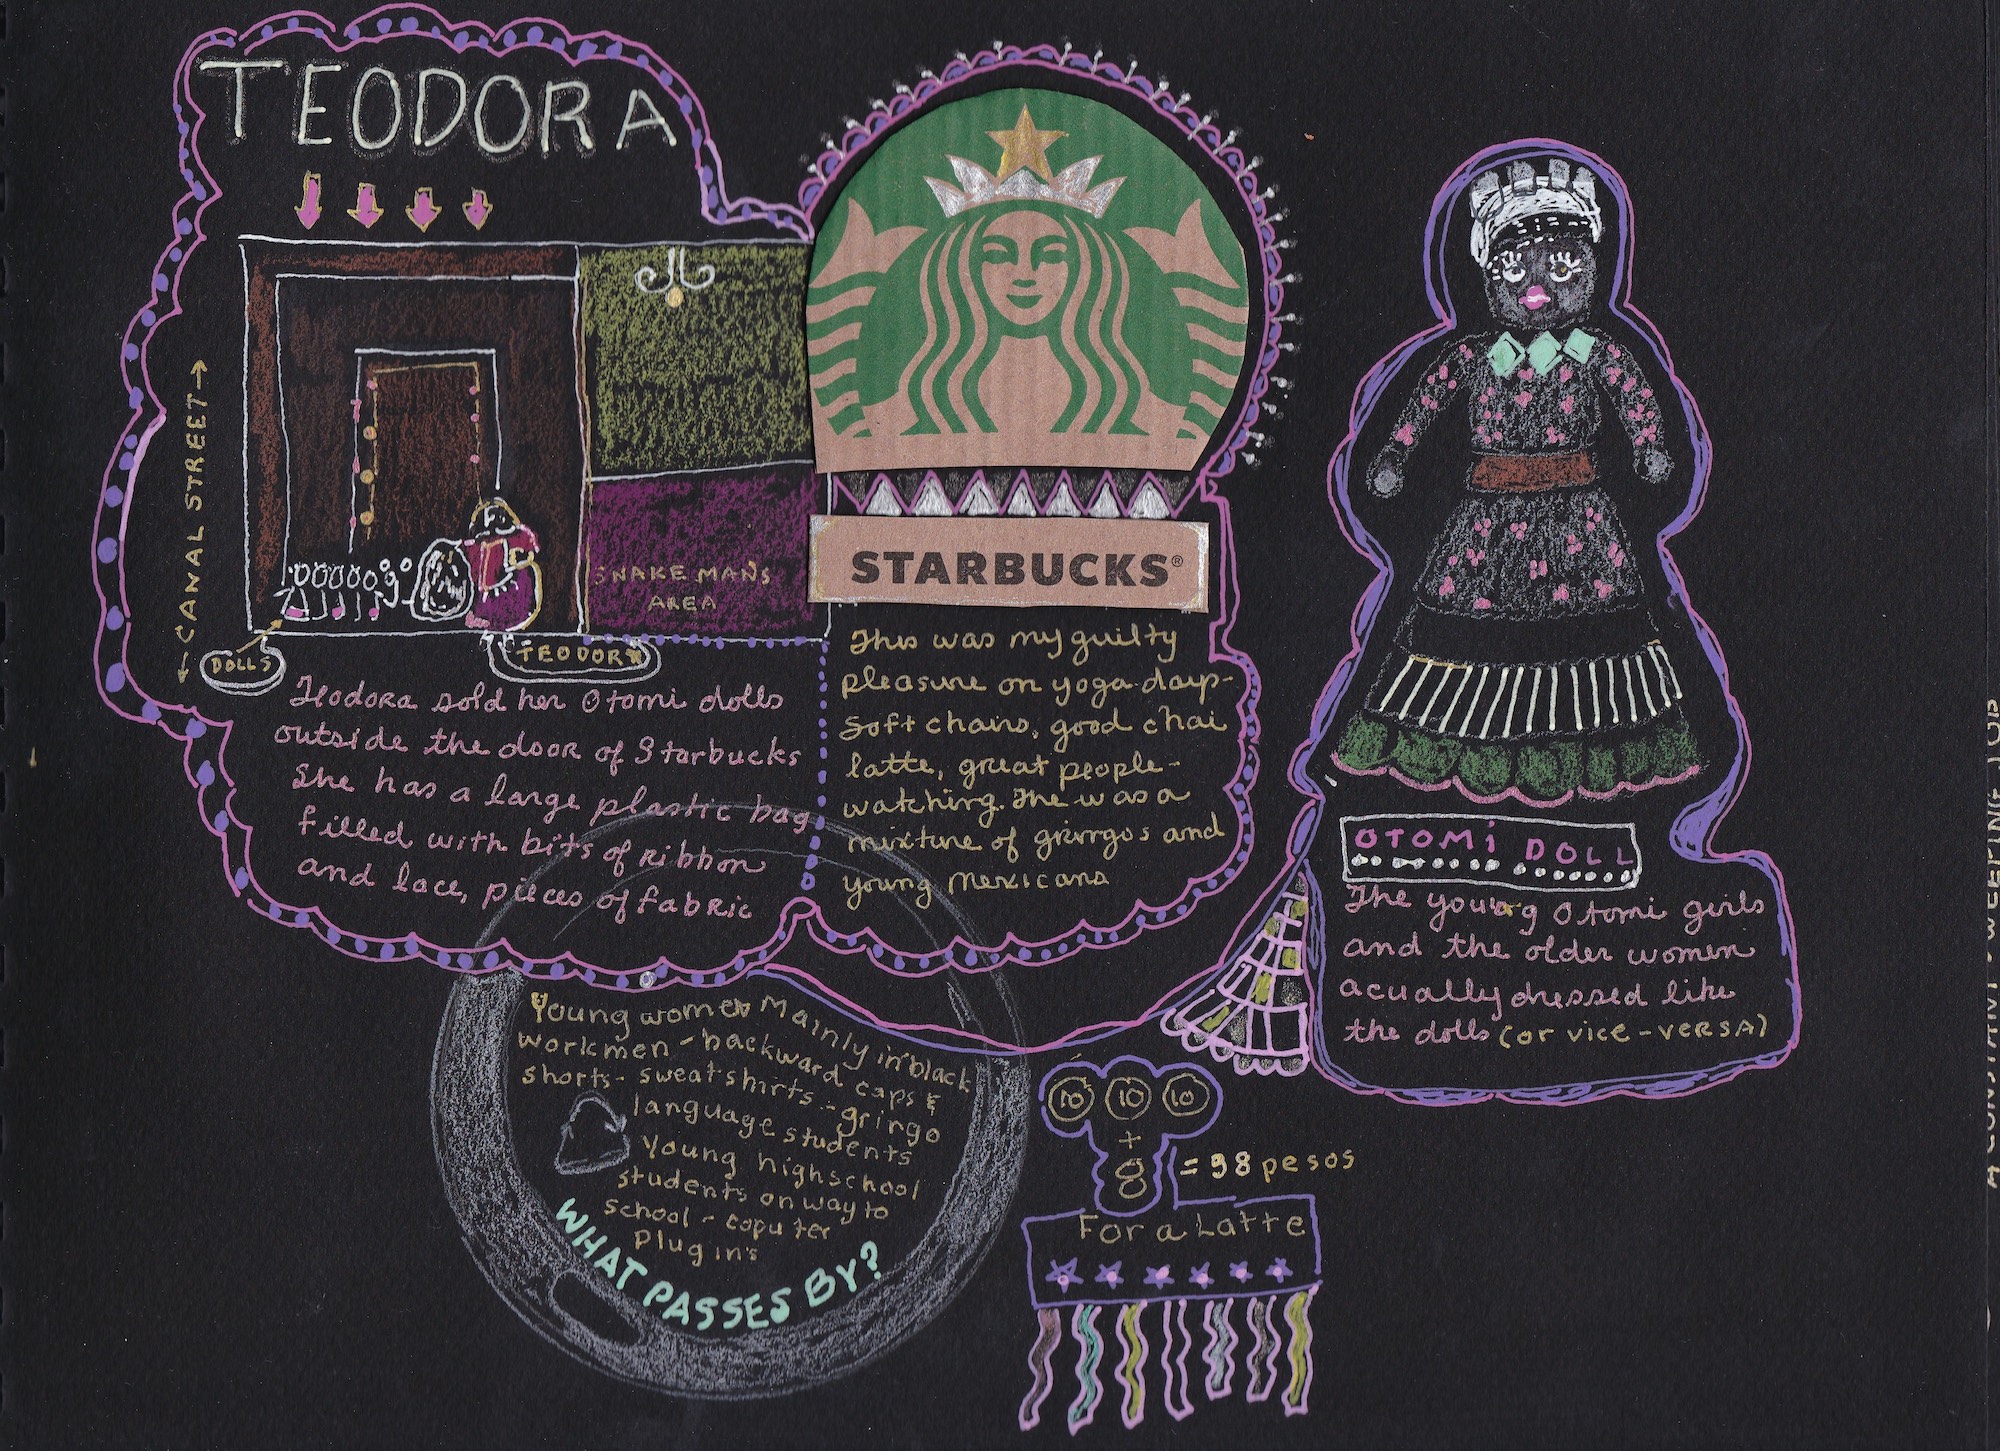 TEODORA
← CANAL STREET →
SNAKE MANS
AREA
DOLLS
TEODORA
Teodora sold her Otomi dolls
outside the door of Starbucks
She has a large plastic bag
filled with bits of ribbon
and lace, pieces of fabric
STARBUCKS®
This was my guilty
pleasure on yoga days-
Soft chairs, good chai
latte, great people-
watching. The was a
mixture of grinrgos and
young Mexicans
OTOMI DOLL
The young Otomi girls
and the older women
acually dressed like
the dolls (or vice-versa)
Young women Mainly in black
workmen - backward caps &
shorts - sweatshirts - gringo
language students
Young highschool
students on way to
school - coputer
plug in's
WHAT PASSES BY?
10 10 10
+
8 = 38 pesos
For a Latte